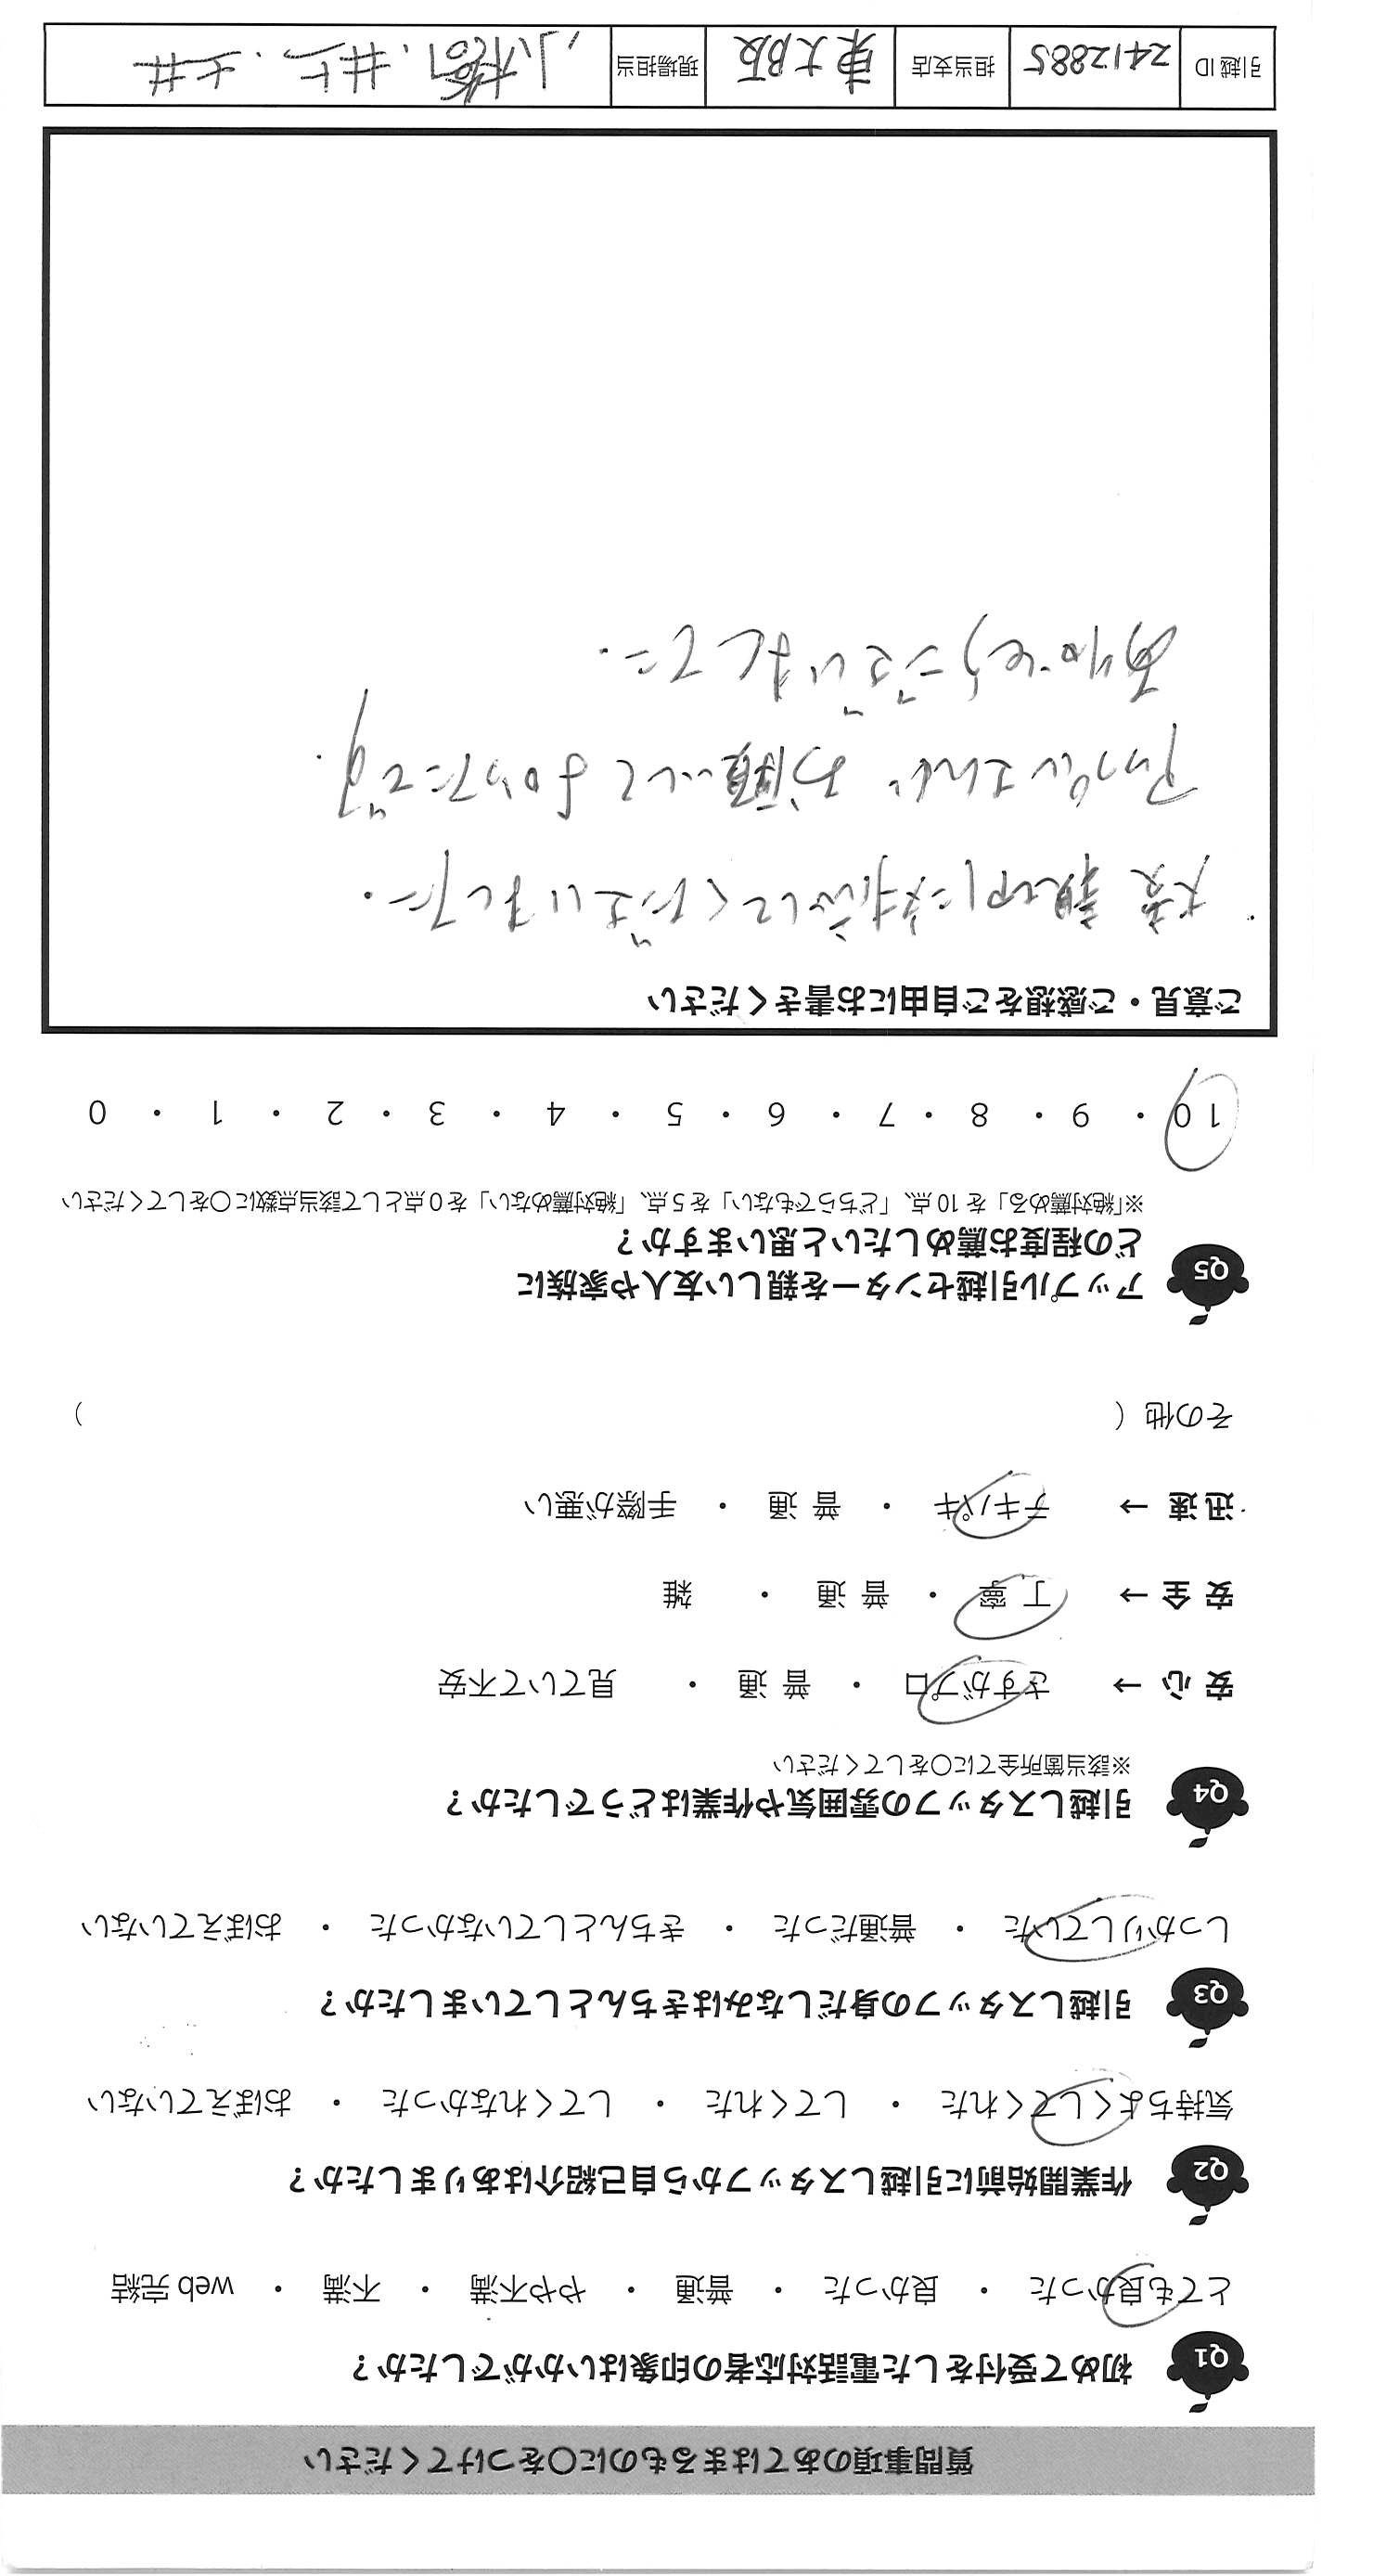 質問事項のあてはまるものに〇をつけてください
Q1 初めて受付をした電話対応者の印象はいかがでしたか？
とても良かった ・ 良かった ・ 普通 ・ やや不満 ・ 不満 ・ web 完結
Q2 作業開始前に引越しスタッフから自己紹介はありましたか？
気持ちよくしてくれた ・ してくれた ・ してくれなかった ・ おぼえていない
Q3 引越しスタッフの身だしなみはきちんとしていましたか？
しっかりしていた ・ 普通だった ・ きちんとしていなかった ・ おぼえていない
Q4 引越しスタッフの雰囲気や作業はどうでしたか？
※該当箇所全てに〇をしてください
安 心 → さすがプロ ・ 普 通 ・ 見ていて不安
安 全 → 丁 寧 ・ 普 通 ・ 雑
迅 速 → テキパキ ・ 普 通 ・ 手際が悪い
その他（ ）
Q5 アップル引越センターを親しい友人や家族に
どの程度お薦めしたいと思いますか？
※「絶対薦める」を 10 点、「どちらでもない」を 5 点、「絶対薦めない」を 0 点として該当点数に〇をしてください
10 ・ 9 ・ 8 ・ 7 ・ 6 ・ 5 ・ 4 ・ 3 ・ 2 ・ 1 ・ 0
ご意見・ご感想をご自由にお書きください
大変親切に対応してくださいました.
アップルさんにお願いしてよかったです.
ありがとうございました.
引越 ID 2412885 担当支店 東大阪 現場担当 小橋.井上.土井